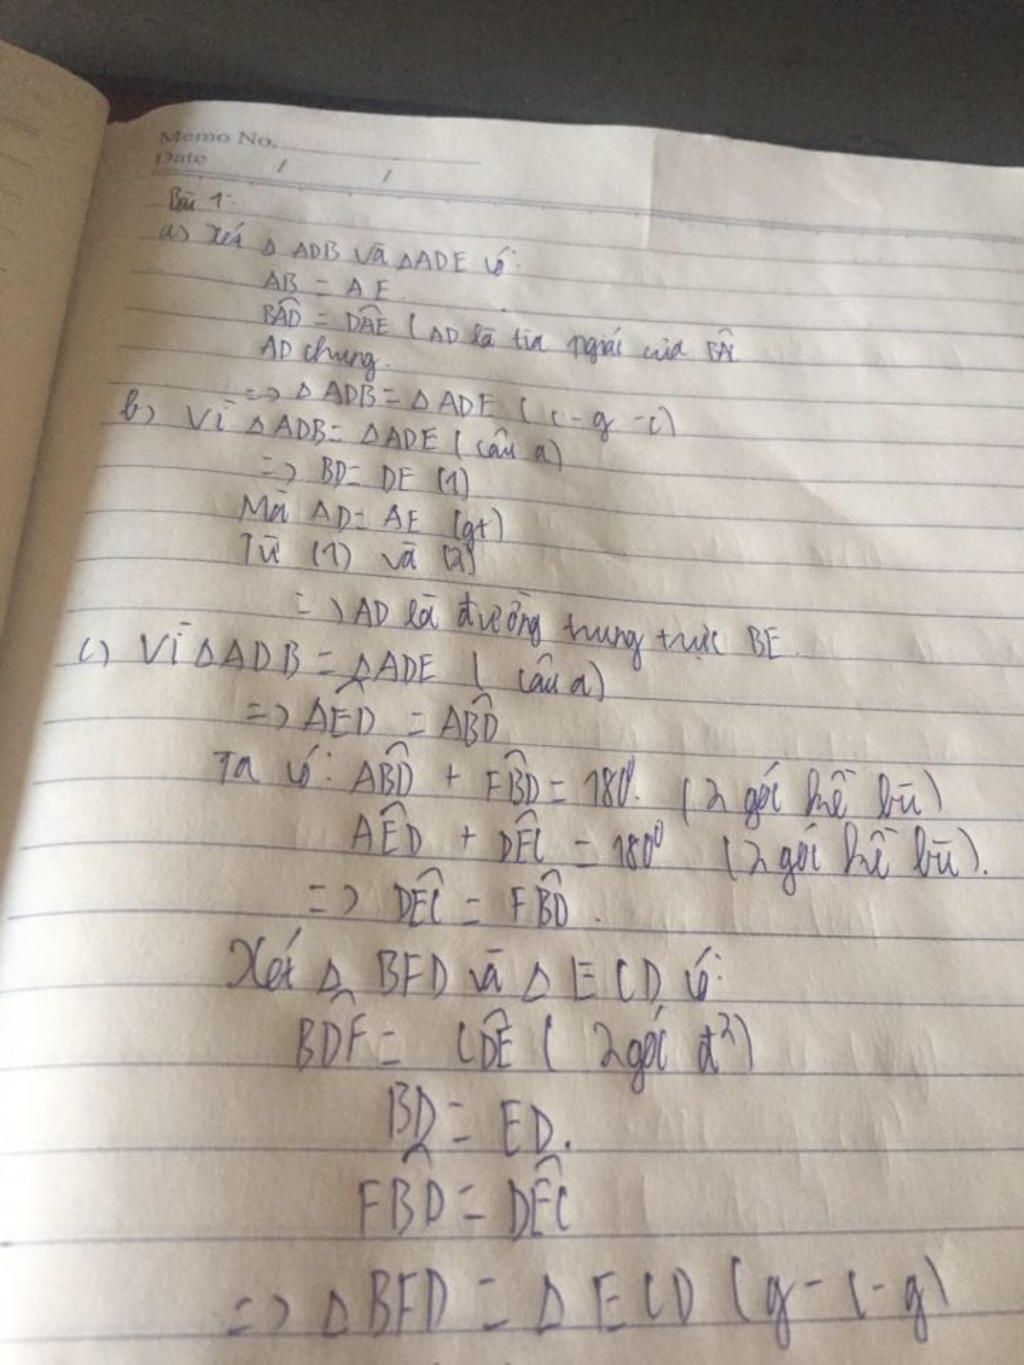 Memo No.
Date / /
Bài 1:
a) Xét △ ADB và △ADE có:
AB = AE
BÂD = DÂE ( AD là tia của BÂC
AD chung.
=> △ ADB = △ ADE ( c - g - c)
b) Vì △ADB = △ADE ( câu a)
=> BD = DE (1)
Mà AD = AE (gt)
Từ (1) và (2)
=> AD là đường trung trực BE.
c) Vì △ADB = △ADE ( câu a)
=> AÊD = AB̂D
Ta có: AB̂D + FB̂D = 180⁰. (2 góc kề bù)
AÊD + DÊC = 180⁰ (2 góc kề bù).
=> DÊC = FB̂D.
Xét △ BFD và △ ECD có:
BD̂F = CD̂E ( 2 góc đ²)
BD = ED.
FB̂D = DÊC
=> △ BFD = △ ECD (g - c - g)